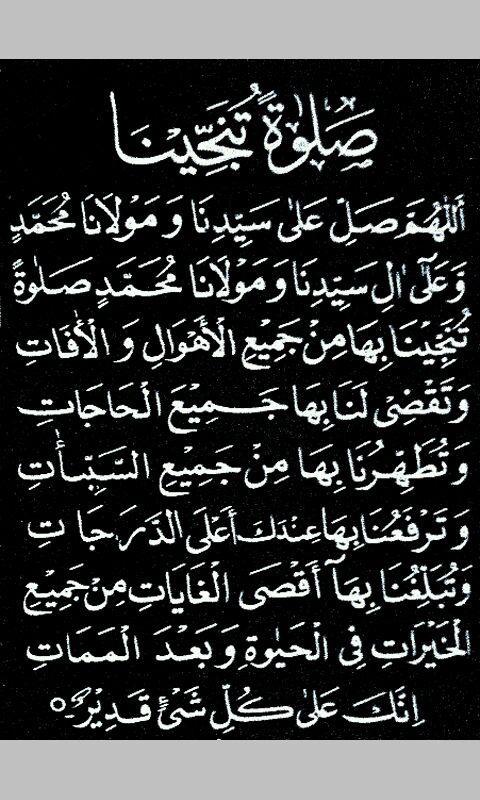 صَلٰوةً تُنَجِّيْنَا
اَللّٰهُمَّ صَلِّ عَلٰى سَيِّدِنَا وَ مَوْلَانَا مُحَمَّدٍ
وَّعَلٰٓى اٰلِ سَيِّدِنَا وَمَوْلَانَا مُحَمَّدٍ صَلٰوةً
تُنَجِّيْنَا بِهَا مِنْ جَمِيْعِ الْأَهْوَالِ وَ الْأٰفَاتِ
وَتَقْضِىْ لَنَا بِهَا جَمِيْعَ الْحَاجَاتِ
وَتُطَهِّرُنَا بِهَا مِنْ جَمِيْعِ السَّيِّئٰاتِ
وَتَرْفَعُنَا بِهَا عِنْدَكَ أَعْلَى الدَّرَجَاتِ
وَتُبَلِّغُنَا بِهَآ أَقْصَى الْغَايَاتِ مِنْ جَمِيْعِ
الْخَيْرَاتِ فِى الْحَيٰوةِ وَبَعْدَ الْمَمَاتِ
اِنَّكَ عَلٰى كُلِّ شَىْءٍ قَدِيْرٌ